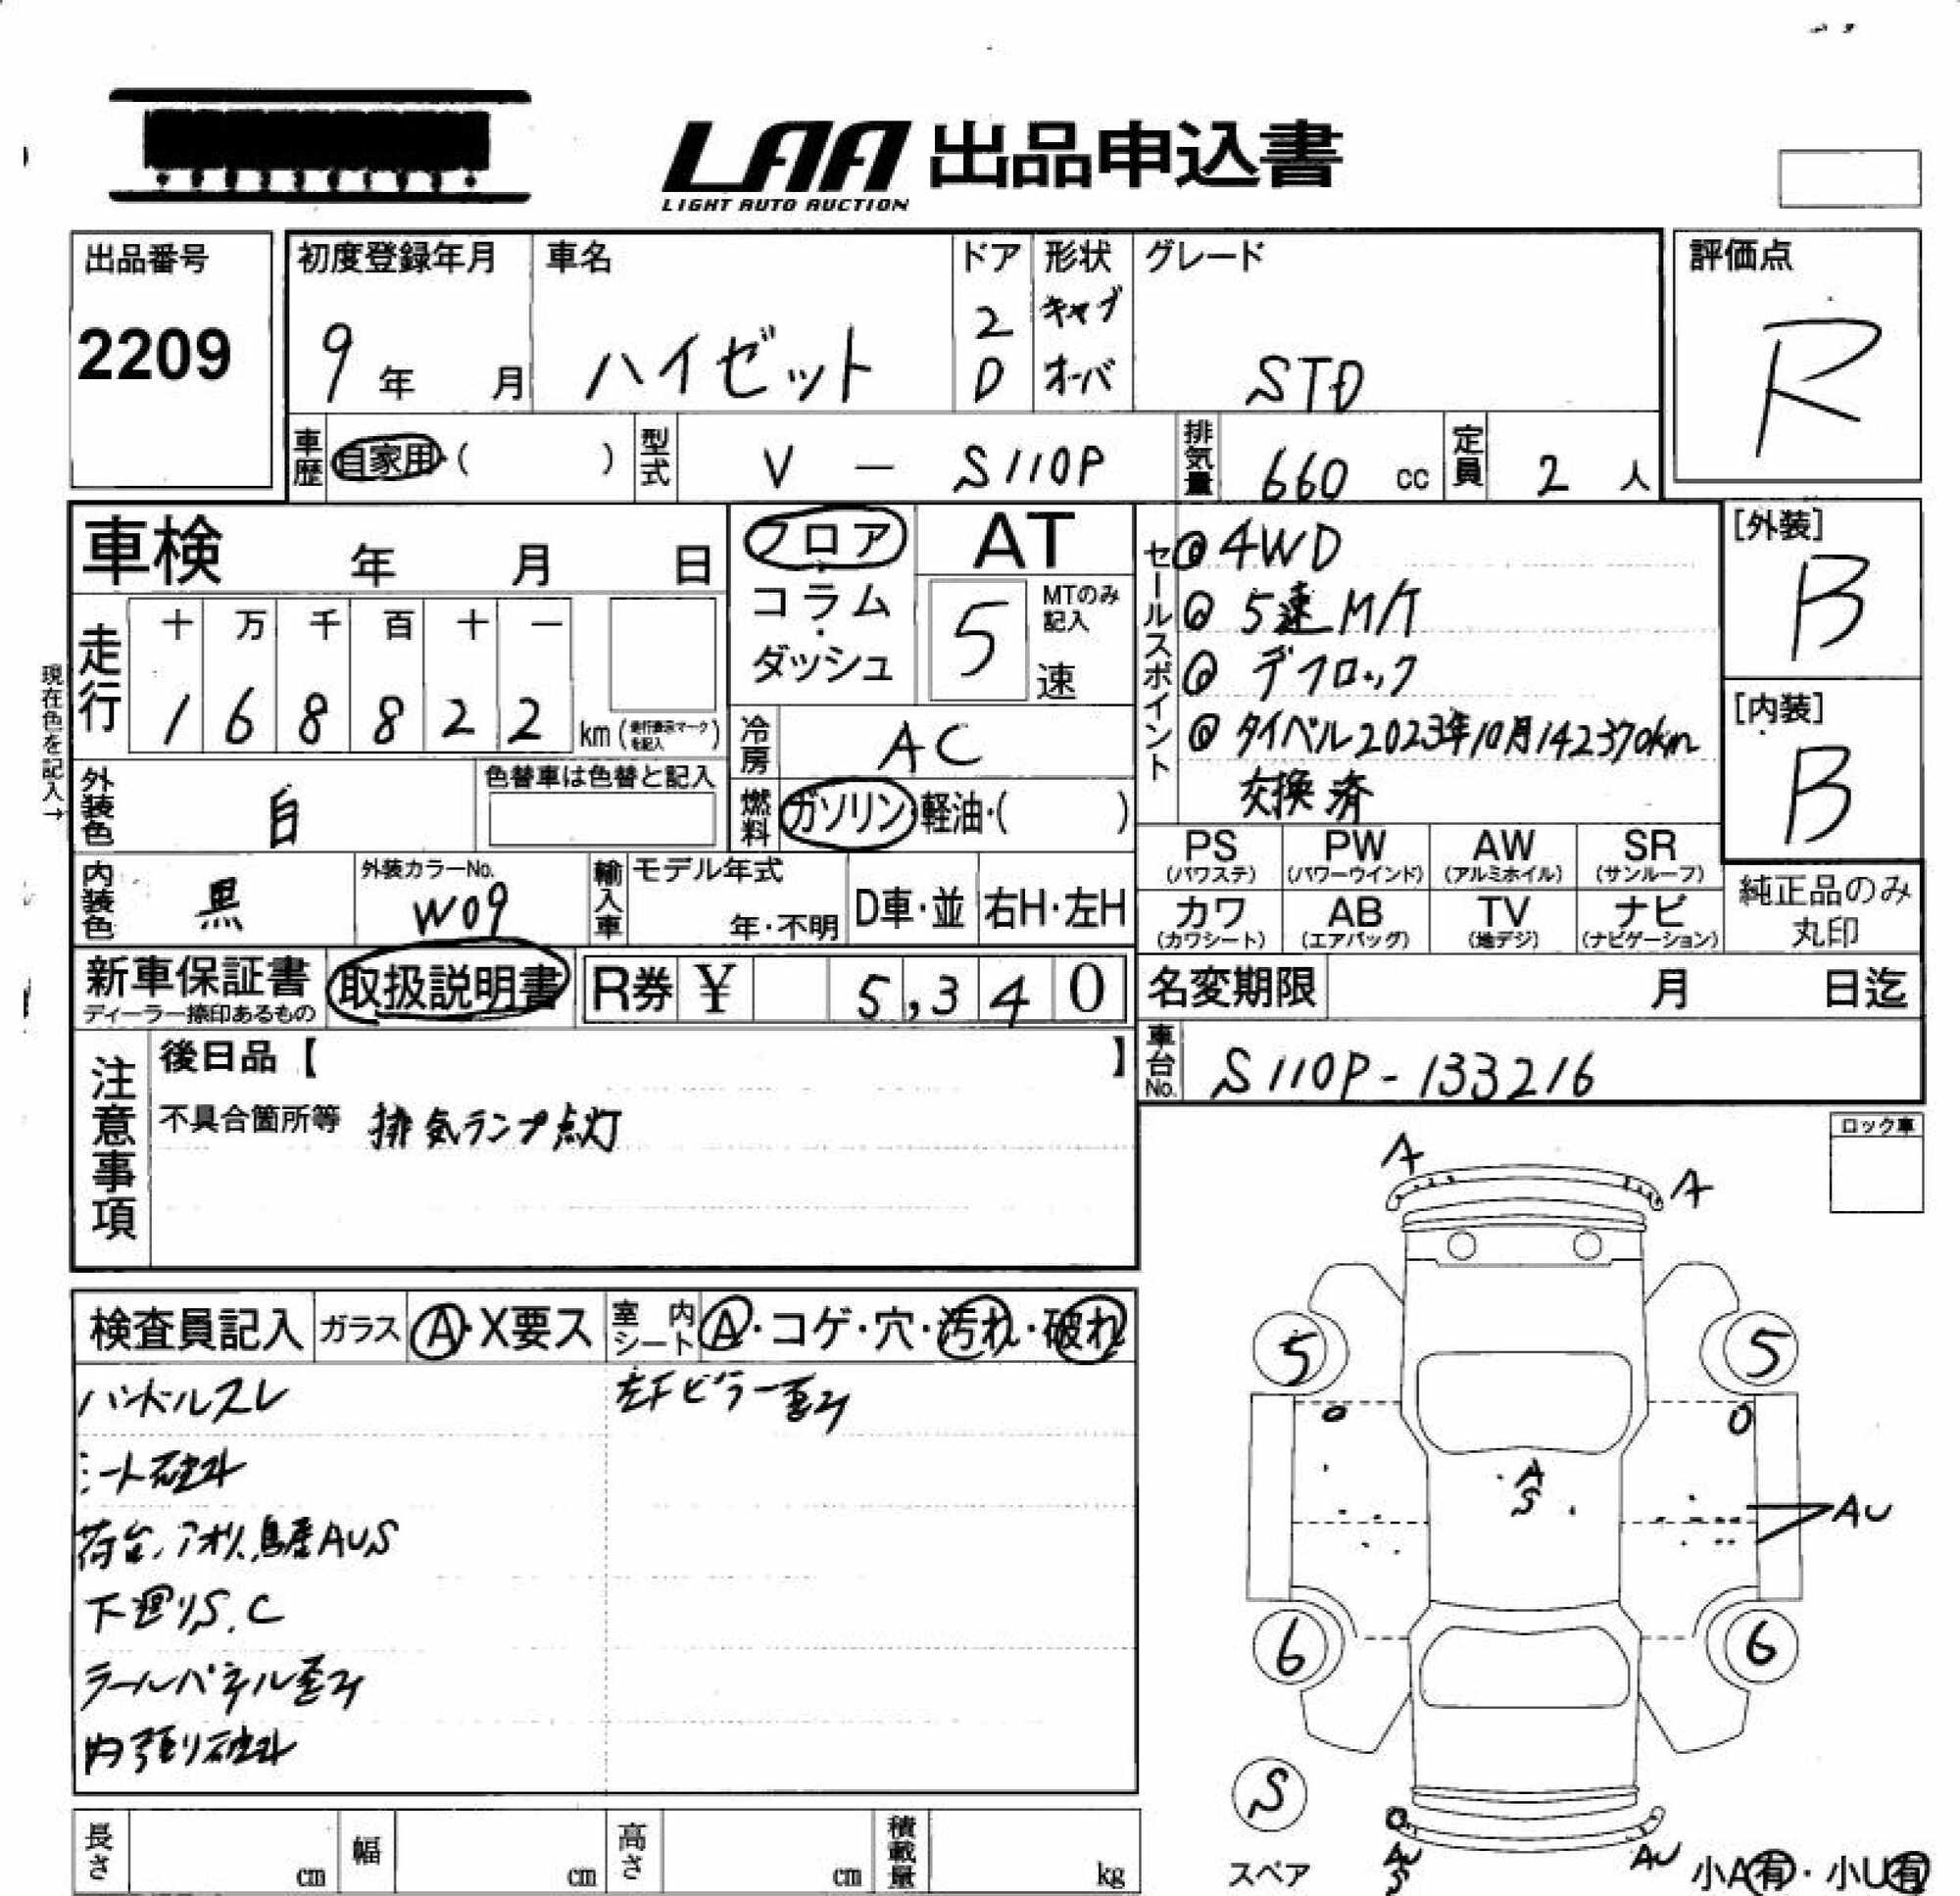 LAA 出品申込書
LIGHT AUTO AUCTION
出品番号
2209
初度登録年月
9年 月
車名
ハイゼット
ドア
2
D
形状
キャブ
オーバ
グレード
STD
評価点
R
車歴
自家用・( )
型式
V - S110P
排気量
660 cc
定員
2 人
車検 年 月 日
フロア
コラム
・
ダッシュ
AT
5 速
MTのみ
記入
セールスポイント
◎ 4WD
◎ 5速 M/T
◎ デフロック
◎ タイベル2023年10月142370km
交換済
[外装]
B
[内装]
B
現在色を記入→
走行
十 万 千 百 十 一
1 6 8 8 2 2 km(走行表示マークを記入)
冷房
AC
外装色
白
色替車は色替と記入
燃料
ガソリン・軽油・( )
内装色
黒
外装カラーNo.
W09
輸入車
モデル年式
年・不明
D車・並
右H・左H
PS
(パワステ)
PW
(パワーウインド)
AW
(アルミホイル)
SR
(サンルーフ)
カワ
(カワシート)
AB
(エアバッグ)
TV
(地デジ)
ナビ
(ナビゲーション)
純正品のみ
丸印
新車保証書
ディーラー捺印あるもの
取扱説明書
R券 ¥ 5,340
名変期限 月 日迄
車台No.
S110P-133216
注意事項
後日品【 】
不具合箇所等 排気ランプ点灯
ロック車
検査員記入
ガラス
A・X要ス
室内
シート
A・コゲ・穴・汚れ・破れ
ハンドルスレ
左Fピラー歪み
シート破れ
荷台、アオリ、鳥居AUS
下廻りS.C
ラールパネル歪み
内張り破れ
A
A
5
5
A
S
AU
6
6
S
スペア
AU
S
AU
小A有・小U有
長さ cm
幅 cm
高さ cm
積載量 kg